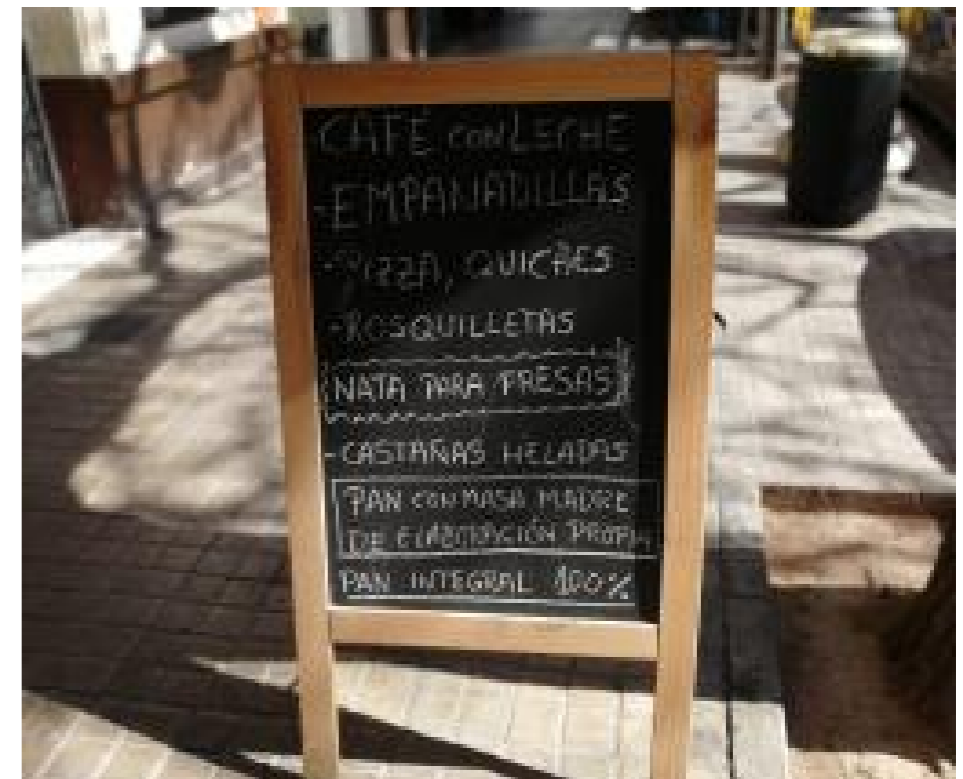 CAFÉ CON LECHE
-EMPANADILLAS
-PIZZA, QUICHES
-ROSQUILLETAS
NATA PARA FRESAS
-CASTAÑAS HELADAS
PAN CON MASA MADRE
DE ELABORACIÓN PROPIA
PAN INTEGRAL 100%